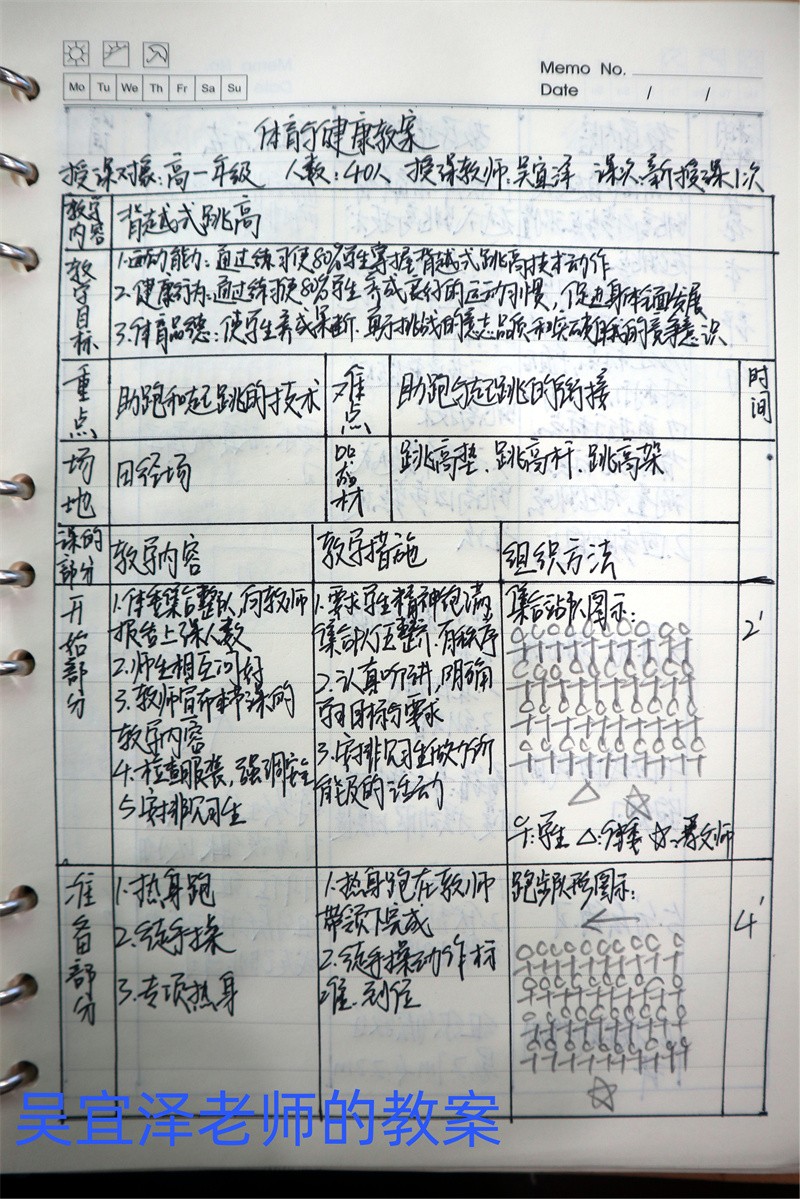 Memo No.
Date / /
Mo Tu We Th Fr Sa Su
体育与健康教案
授课对象:高一年级 人数:40人 授课教师:吴宜泽 课次:新授课1次
教学内容 背越式跳高
教学目标 1.运动能力:通过练习使80%学生掌握背越式跳高技术动作
2.健康行为:通过练习使80%学生养成良好的运动习惯,促进身体全面发展
3.体育品德:使学生养成果断、勇于挑战的意志品质和实现目标的竞争意识
重点 助跑和起跳的技术 难点 助跑与起跳的衔接 时间
场地 田径场 器材 跳高垫、跳高杆、跳高架
课的部分 教学内容 教学措施 组织方法
开始部分
1.体委集合整队,向教师
报告上课人数
2.师生相互问好
3.教师宣布本节课的
教学内容
4.检查服装,强调安全
5.安排见习生
1.要求学生精神饱满,
集合队伍整齐、有秩序
2.认真听讲,明确
学习目标与要求
3.安排见习生做力所
能及的活动
集合站队图示:
:学生 △:体委 ☆:教师
2'
准备部分
1.热身跑
2.徒手操
3.专项热身
1.热身跑在教师
带领下完成
2.徒手操动作标
准、到位
跑步队形图示:
4'
吴宜泽老师的教案